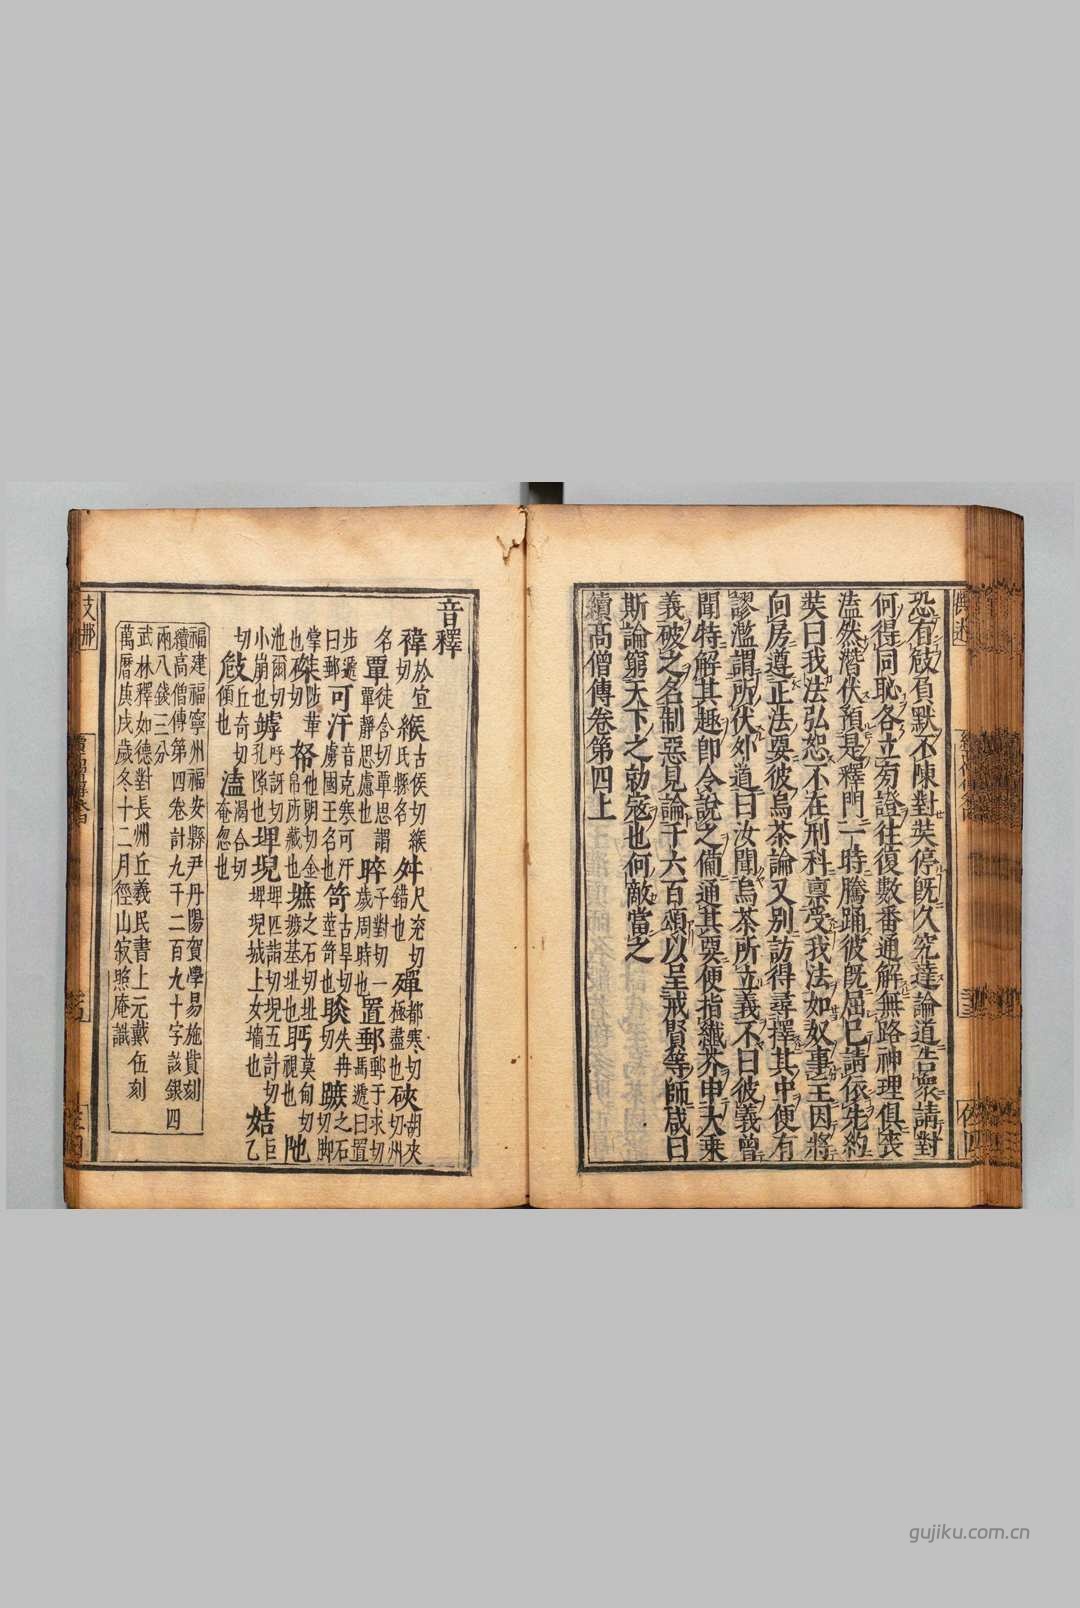 恐有攲負默不陳對奘停既久究達論道告衆請對
何得同恥各立旁證往復數番通解無路神理俱喪
溘然潛伏預是釋門一時騰踊彼既屈已請依先約
奘曰我法弘恕不在刑科禀受我法如奴事主因將
向房遵正法要彼烏茶論又別訪得尋擇其中便有
謬濫謂所伏外道曰汝聞烏茶所立義不曰彼義曾
聞特解其趣卽令說之備通其要便指纖芥申大乗
義破之名制惡見論千六百頌以呈戒賢等師咸曰
斯論窮天下之勍寇也何敵當之
續高僧傳卷第四上
音釋
褘於宜切 緱古侯切緱氏縣名 舛尺兖切錯也 殫都寒切極盡也 硤胡夾切州名
覃徒含切覃思謂覃靜思慮也 晬子對切一歲周時也 置郵郵于求切馬遞曰置步遞曰郵
可汗音克寒可汗虜國王名也 笴古旱切莖笴也 睒失冉切 蹠之石切脚掌
桀陟革切 帑他朗切金帛所藏也 墌之石切址也墌基址也 眄莫甸切視也 阤池爾切小崩也
罅呼訝切孔隙也 埤堄埤匹詣切堄五計切埤堄城上女墻也 姞巨乙切
攲丘奇切傾也 溘渴合切奄忽也
福建福寧州福安縣尹丹陽賀學易施貲刻
續高僧傳第四卷計九千二百九十字該銀四
兩八錢三分
武林釋如德對長州丘義民書上元戴伍刻
萬曆庚戌歲冬十二月徑山寂照庵識
支那
gujiku.com.cn